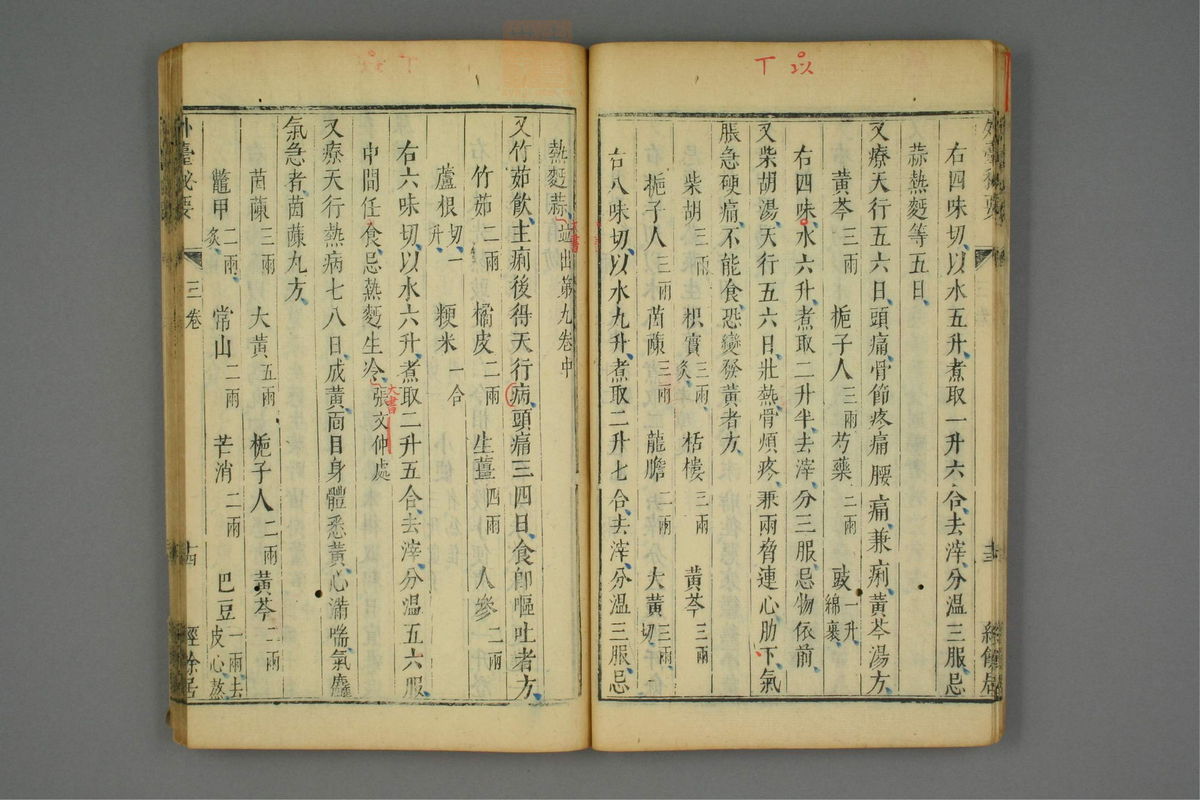 右四味切以水五升煮取一升六合去滓分溫三服忌
蒜熱麪等五日
又療天行五六日頭痛骨節疼痛腰痛兼痢黃芩湯方
黃芩三兩 梔子人三兩 芍藥二兩 豉一升綿裹
右四味水六升煮取二升半去滓分三服忌物依前
又柴胡湯天行五六日壯熱骨煩疼兼兩脅連心肋下氣
脹急硬痛不能食恐變發黃者方
柴胡三兩 枳實三兩炙 栝樓三兩 黃芩三兩
梔子人三兩 茵蔯三兩 龍膽二兩 大黃三兩切
右八味切以水九升煮取二升七合去滓分溫三服忌
熱麪蒜並出第九卷中
又竹茹飲主痢後得天行病頭痛三四日食即嘔吐者方
竹茹二兩 橘皮二兩 生薑四兩 人參二兩
蘆根切一升 粳米一合
右六味切以水六升煮取二升五合去滓分溫五六服
中間任食忌熱麪生冷張文仲處
大書
又療天行熱病七八日成黃面目身體悉黃心滿喘氣麤
氣急者茵蔯丸方
茵蔯三兩 大黃五兩 梔子人二兩 黃芩二兩
鼈甲二兩炙 常山二兩 芒消二兩 巴豆一兩去皮心熬
外臺祕要 三卷 十四 經餘居